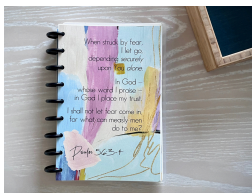 When struck by fear,
I let go,
depending securely
upon You alone.
In God –
whose word I praise –
in God I place my trust.
I shall not let fear come in,
for what can measly men
do to me?
Psalm 56:3-4